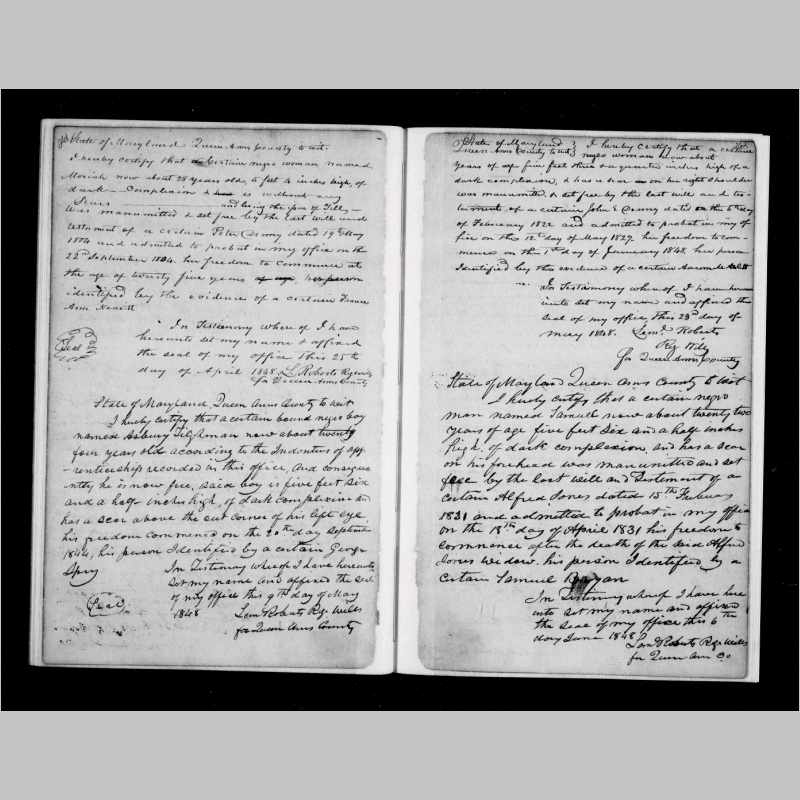 State of Maryland Queen Anns County to wit:
I hereby certify that a certain negro woman named
Moriah now about 28 years old, 5 feet 4 inches high, of
dark Complexion & is without any
Scars and being the
was manumitted & set free by the last will and
testament of a certain Peter Denny dated 19th May
1804 and admitted to probat in my office on the
22nd September 1804. her freedom to commence at
the age of twenty five years her person
identified by the evidence of a certain
Ann
In Testimony where of I have
hereunto set my name & affixed
the seal of my office this 25th
day of April 1848 L. Roberts Reg wills
for Queen Anns County
Seal
State of Maryland, Queen Anns County to wit
I hereby certify that a certain bound negro boy
named Asbury Tilghman now about twenty
four years old according to the Indenties of app
renticeship recorded in this office, and consequ
ntly he is now free, said boy is five feet six
and a half inches high, of dark complexion &
has a scar above the out corner of his left eye,
his freedom commenced on the 20th day September
1844, his person Identified by a certain George
Spry
In Testimony whereof I have hereunto
set my name and affixed the seal
of my office this 9th day of May
1848
Seal
Lem Roberts Reg Wills
for Queen Anns County
State of Maryland
Queen Anns County to wit
I hereby certify that a certain
negro woman now about
years of five feet three & a quarter inches high of a
dark complexion, & has a scar on her right shoulder
was manumitted & set free by the last will and tes-
tament of a certain John Denny dated on the 6th day
of February 1822 and admitted to probat in my of
fice on the 12th day of May 1827. her freedom to com-
mence on the 1st day of January 1848. her person
Identified by the evidence of a certain
In Testimony where of I have here
unto set my name and affixed the
seal of my office, this 23d day of
May 1848. Lem. Roberts
Reg Wills
for Queen Anns County
State of Maryland Queen Anns County to wit
I hereby certify that a certain negro
man named Samuel now about twenty two
years of age five feet six and a half inches
high, of dark complexion, and has a scar
on his forehead was manumitted and set
free by the last will and Testament of a
certain Alfred Jones dated 15th Febuary
1831 and admitted to probat in my office
on the 18th day of April 1831 his freedom to
commence after the death of the said Alfred
Jones widow. his person Identified by a
certain Samuel Bryan
In Testimony whereof I have here
unto set my name and affixed
the seal of my office this 6th
day June 1848
Lem Roberts Reg Wills
for Queen Ann Co